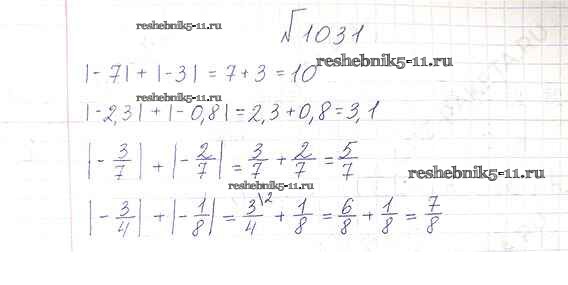 reshebnik5-11.ru
№1031
|-7| + |-3| = 7+3 = 10 reshebnik5-11.ru
reshebnik5-11.ru
|-2,3| + |-0,8| = 2,3+0,8 = 3,1
|-3/7| + |-2/7| = 3/7 + 2/7 = 5/7
reshebnik5-11.ru
reshebnik5-11.ru
|-3/4| + |-1/8| = 3\2/4 + 1/8 = 6/8 + 1/8 = 7/8